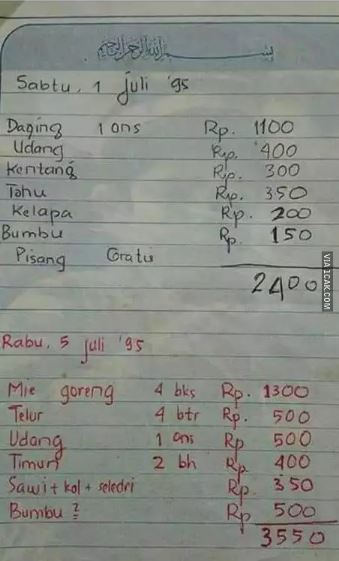 بسم الله الرحمن الرحيم
Sabtu, 1 juli '95
Daging 1 ons Rp. 1100
Udang Rp. 400
Kentang Rp. 300
Tahu Rp. 350
Kelapa Rp. 200
Bumbu Rp. 150
Pisang Gratis
2400
Rabu, 5 juli '95
Mie goreng 4 bks Rp. 1300
Telur 4 btr Rp. 500
Udang 1 ons Rp 500
Timun 2 bh Rp. 400
Sawi + kol + seledri Rp. 350
Bumbu ² Rp 500
3550
VIA 1CAK.COM